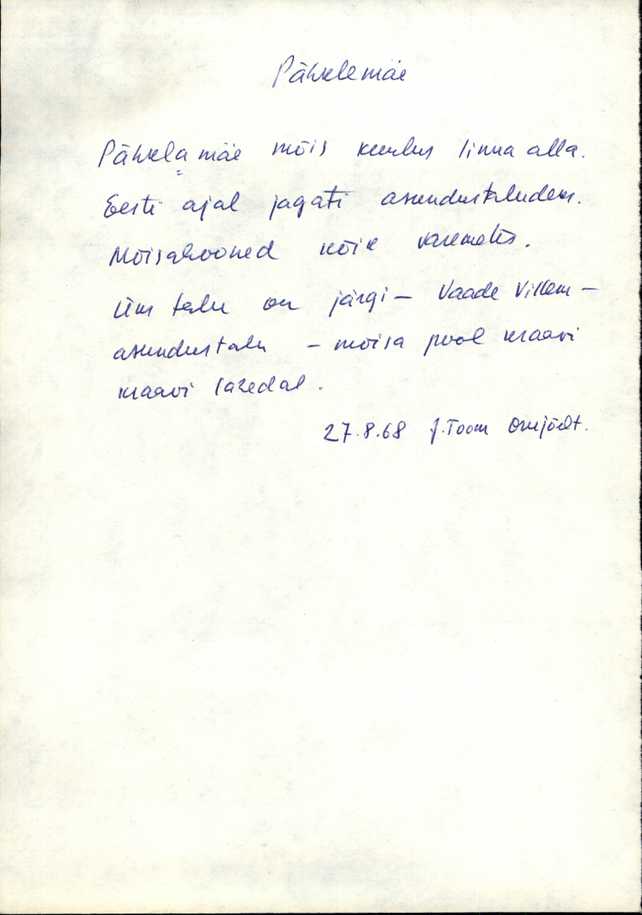 Pähklemäe
Pähklamäe mõis kuulus linna alla.
Eesti ajal jagati asundustaludeks.
Mõisahooned kõik varemetes.
Üks talu on järgi – Vaade Villem –
asundustalu – mõisa pool kraavi
kraavi karedal.
27.8.68 J. Toom